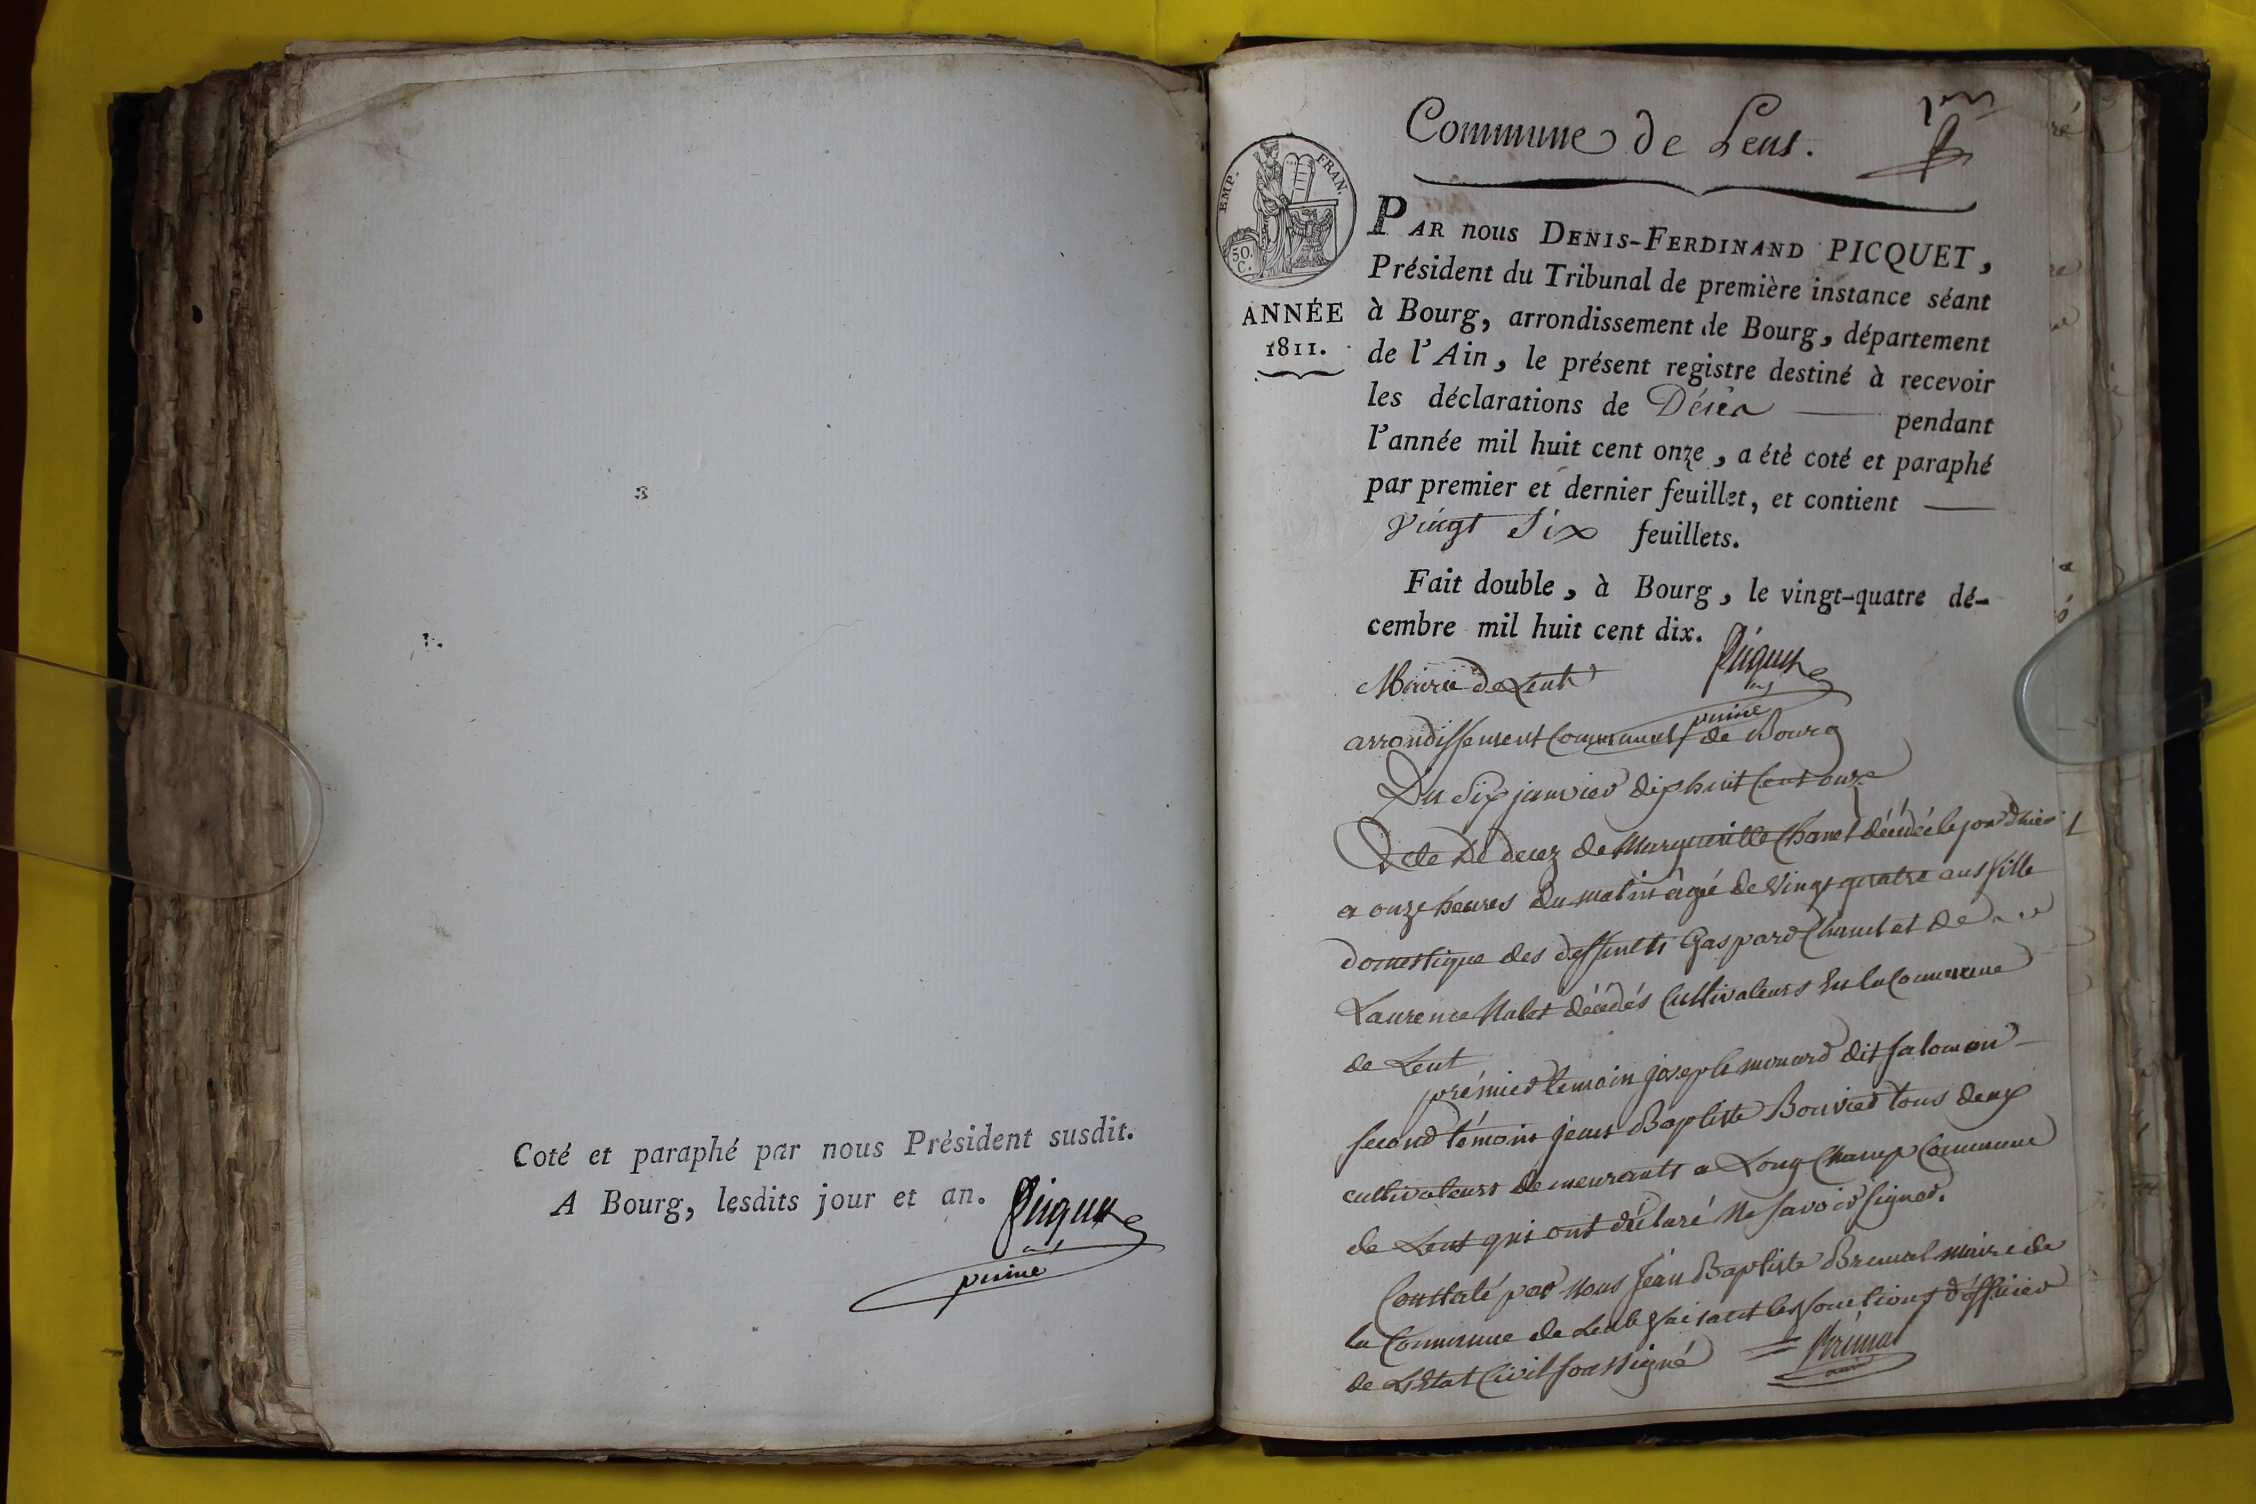 Coté et paraphé par nous Président susdit.
A Bourg, lesdits jour et an. Picquet
Commune de Lent.
1er
EMP. FRAN.
50. C.
ANNÉE
1811.
PAR nous DENIS-FERDINAND PICQUET,
Président du Tribunal de première instance séant
à Bourg, arrondissement de Bourg, département
de l'Ain, le présent registre destiné à recevoir
les déclarations de Décès pendant
l'année mil huit cent onze, a été coté et paraphé
par premier et dernier feuillet, et contient
vingt Six feuillets.
Fait double, à Bourg, le vingt-quatre dé-
cembre mil huit cent dix.
Picquet
Mairie de Lent
arrondissement Communal de Bourg
Du Six janvier dix huit Cent onze
Acte de decez de Marguerite Chanel décédée le jour d'hier
a onze heures du matin âgé de vingt quatre ans fille
domestique des deffunts Gaspard Chanel et de
Laurence décédés Cultivateurs En la Commune
de Lent
prémier temoin joseph monard dit salomon
second témoin jean Baptiste Bouvier tous deux
cultivateurs demeurants a Long Champ Commune
de Lent qui ont déclaré Ne savoir signer.
Constaté par Nous Jean Baptiste maire de
la Commune de Lent faisant les fonctions d'officier
de L'Etat Civil soussigné